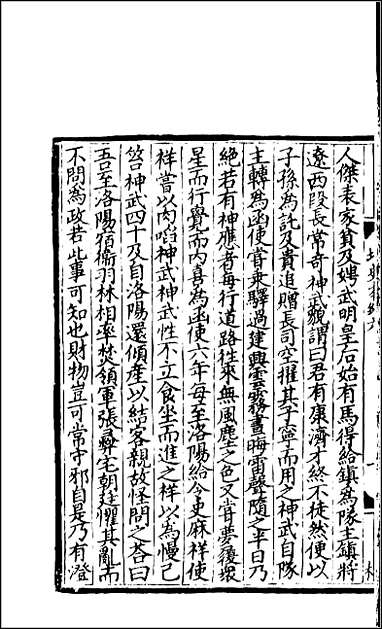 人傑表家貧及娉武明皇后始有馬得給鎮為隊主鎮將
遼西段長常奇神武貌謂曰君有康濟才終不徒然便以
子孫為託及貴追贈長司空擢其子寧而用之神武自隊
主轉為函使嘗乗驛過建興雲霧晝晦雷聲隨之半日乃
絶若有神應者每行道路徃來無風塵之色又嘗夢履衆
星而行覺而内喜為函使六年每至洛陽給令史麻祥使
祥嘗以肉啗神武神武性不立食坐而進之祥以為慢己
笞神武四十及自洛陽還傾産以結客親故怪問之荅曰
吾至洛陽宿衞羽林相率焚領軍張彝宅朝廷懼其亂而
不問為政若此事可知也財物豈可常守邪自是乃有澄